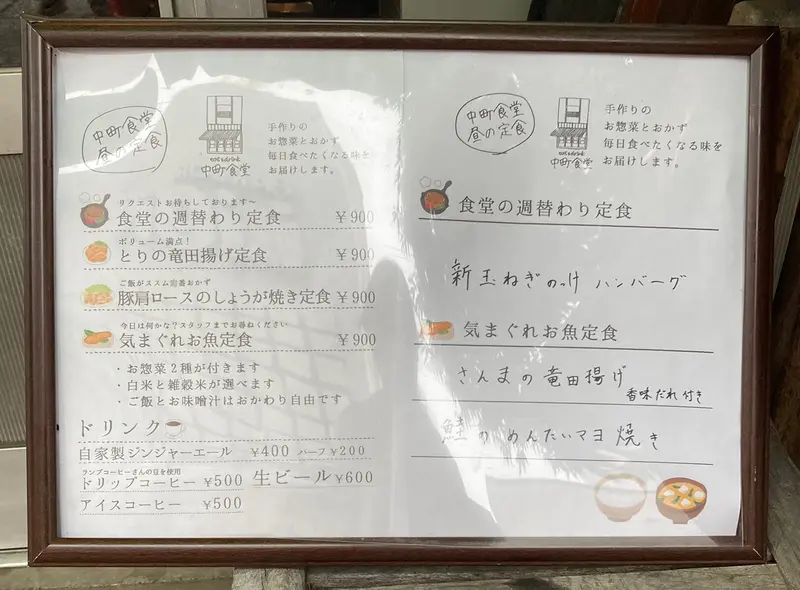 中町食堂
昼の定食
eat&drink
中町食堂
手作りの
お惣菜とおかず
毎日食べたくなる味を
お届けします。
リクエストお待ちしております~
食堂の週替わり定食 ¥900
ボリューム満点!
とりの竜田揚げ定食 ¥900
ご飯がススム定番おかず
豚肩ロースのしょうが焼き定食 ¥900
今日は何かな?スタッフまでお尋ねください
気まぐれお魚定食 ¥900
・お惣菜2種が付きます
・白米と雑穀米が選べます
・ご飯とお味噌汁はおかわり自由です
ドリンク
自家製ジンジャーエール ¥400 ハーフ¥200
ランプコーヒーさんの豆を使用
ドリップコーヒー ¥500 生ビール¥600
アイスコーヒー ¥500
中町食堂
昼の定食
eat&drink
中町食堂
手作りの
お惣菜とおかず
毎日食べたくなる味を
お届けします。
食堂の週替わり定食
新玉ねぎのっけ ハンバーグ
気まぐれお魚定食
さんまの竜田揚げ
香味だれ付き
鮭のめんたいマヨ焼き